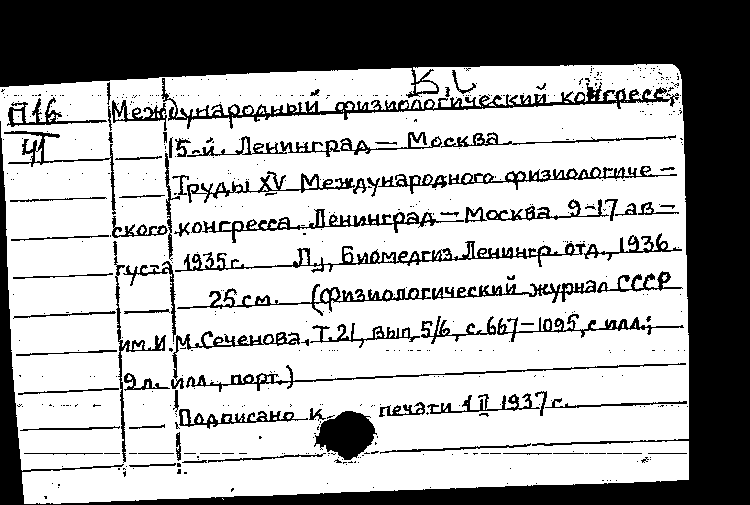 В, С
П 16 Международный физиологический конгресс,
41 15-й. Ленинград — Москва.
Труды XV Международного физиологиче-
ского конгресса. Ленинград — Москва. 9-17 ав-
густа 1935 г. Л., Биомедгиз. Ленингр. отд., 1936.
25 см. (Физиологический журнал СССР
им. И. М. Сеченова. Т. 21, вып. 5/6, с. 667-1095, с илл.;
9 л. илл., порт.)
Подписано к печати 1 II 1937 г.